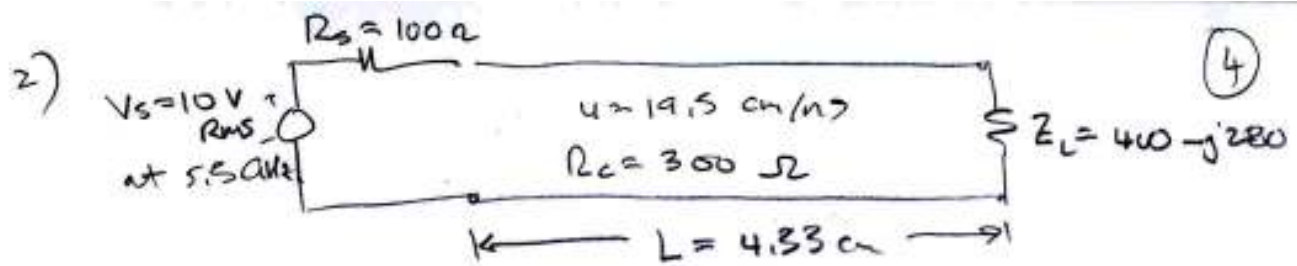 2)
R_s = 100 Ω
④
V_s = 10 V
RMS
at 5.5 GHz
u = 19.5 cm/ns
R_c = 300 Ω
Z_L = 400 - j280
L = 4.33 cm